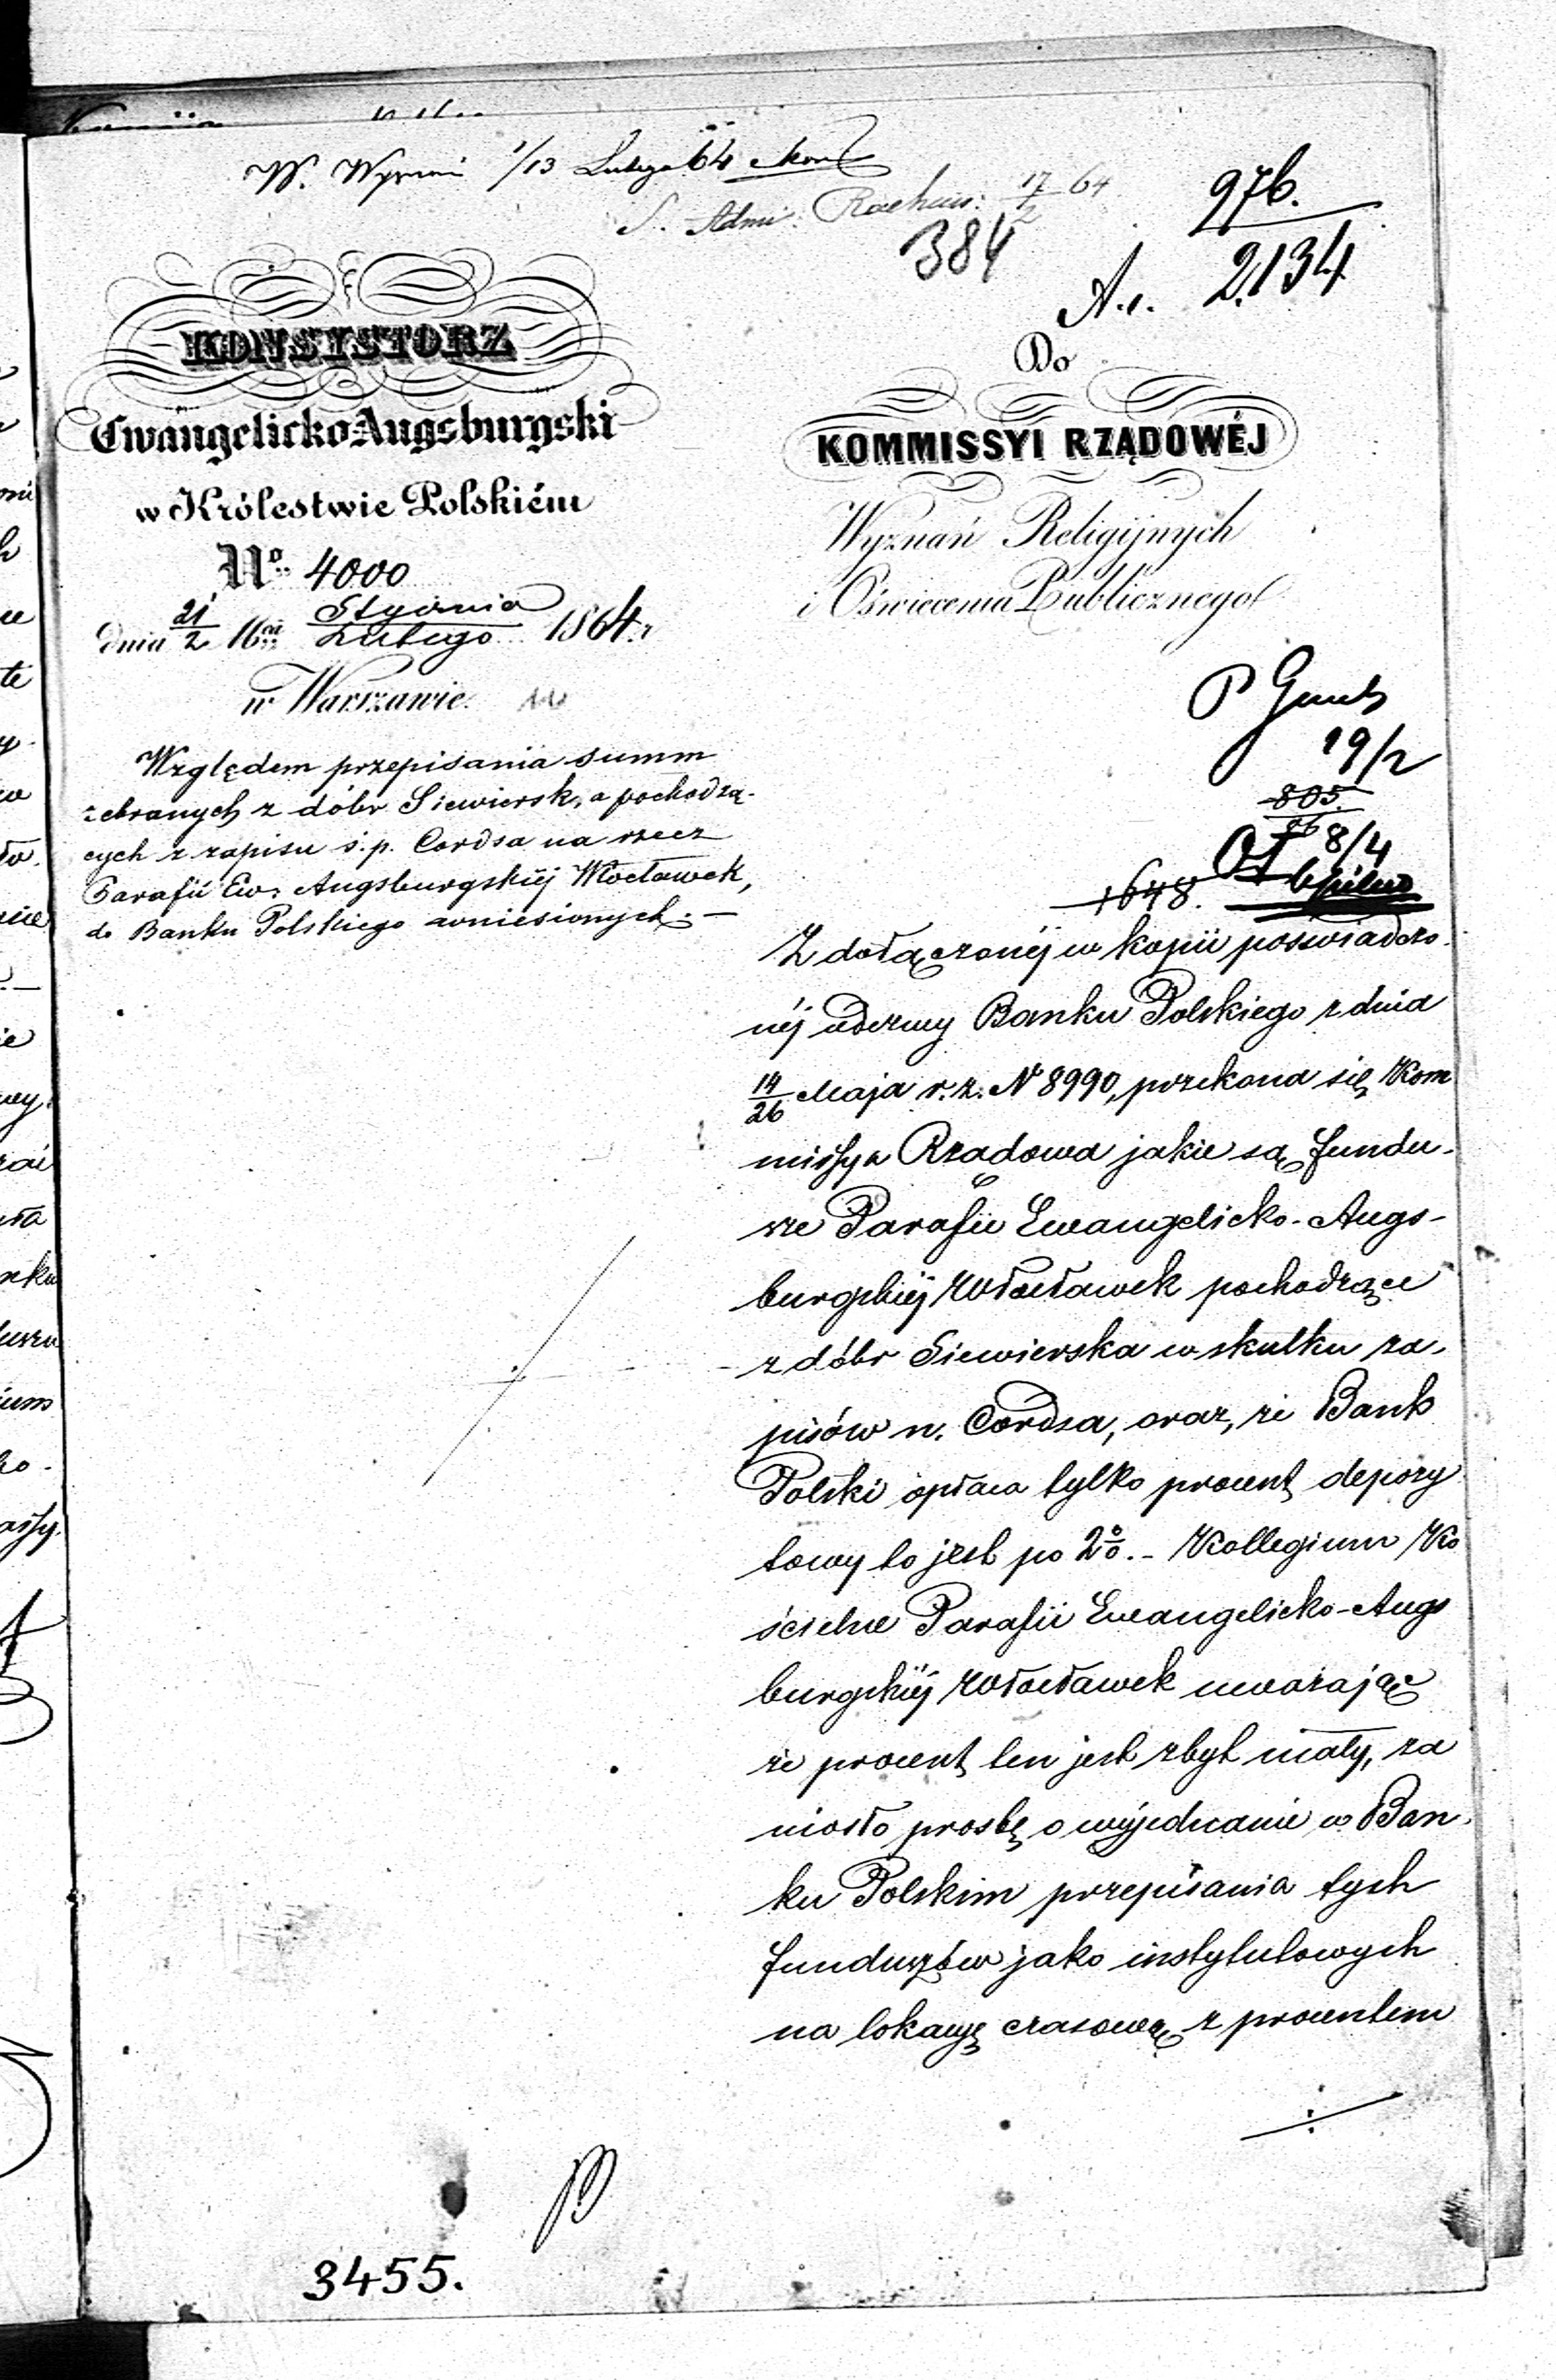 1/13 Lutego 64
S. Admi: Rachun: 17/2 64
976.
384
A.c. 2134
KONSYSTORZ
Ewangelicko-Augsburgski
w Królestwie Polskiém
No. 4000
dnia 21/2 Stycznia/Lutego 1864 r
w Warszawie.
Względem przepisania summ
zebranych z dóbr Siewiersk, a pochodzą-
cych z zapisu ś.p. Cordsa na rzecz
Parafii Ew: Augsburgskiéj Włocławek,
do Banku Polskiego wniesionych. —
Do
KOMMISSYI RZĄDOWÉJ
Wyznań Religijnych
i Oświecenia Publicznego
19/2
805.
8/4
1648.
Z dołączonéj w kopii poświadczo-
néj odezwy Banku Polskiego z dnia
14/26 Maja r. z. N 8990, przekona się Kom
missya Rządowa jakie są fundu-
sze Parafii Ewangelicko-Augs-
burgskiéj Włocławek pochodzące
z dóbr Siewierska w skutku za-
pisów n. Cordsa, oraz, że Bank
Polski opłaca tylko procent depozy
towy to jest po 2%. - Kollegium Ko
ścielne Parafii Ewangelicko-Augs
burgskiéj Włocławek uważając
że procent ten jest zbyt mały, za
niosło prośbę o wyjednanie w Ban-
ku Polskim przepisania tych
funduszów jako instytutowych
na lokacyę czasową z procentem
3455.